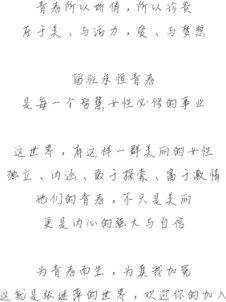 青春所以珍贵，所以诱人
在于美、与活力，爱、与梦想
留驻永恒青春
是每一个智慧女性必修的事业
这世界，有这样一群美丽的女性
独立、内涵、敢于探索、富于激情
她们的青春，不只是美丽
更是内心的强大与自信
为青春而生，为真我加冕
这就是张进萍的世界，欢迎你的加入